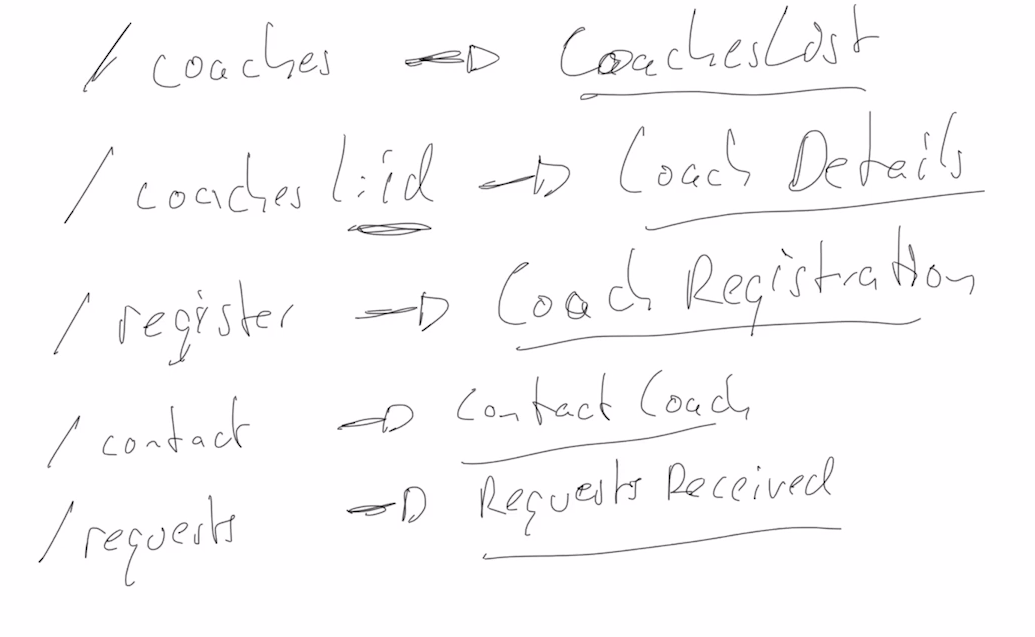 / coaches => CoachesList
/ coaches/:id => Coach Details
/ register => Coach Registration
/ contact => Contact Coach
/ requests => Requests Received